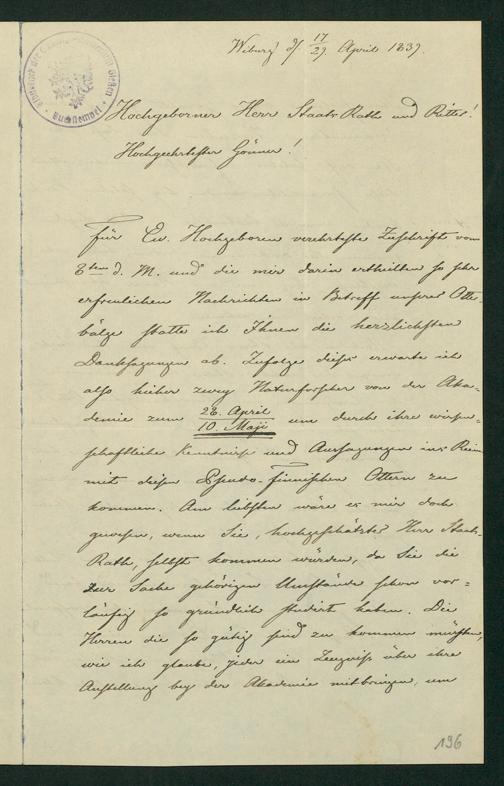 Wiburg d/ 17/29 April 1837.
Hochgeborner Herr Staats Rath und Ritter!
Hochgeehrtester Gönner!
Für Ew. Hochgeboren verehrteste Zuschrift vom
6ten d. M. und die mir darin ertheilten so sehr
erfreulichen Nachrichten in Betreff unsres Otter-
bälge statte ich Ihnen die herzlichsten
Danksagungen ab. Zufolge dieser erwarte ich
also hieher zwey Naturforscher von der Aka-
demie zum 28. April/10. Maji um durch ihre wissen-
schaftliche Kenntniß und Aussagungen ins Rein
mit diesen Pseudo-finnischen Ottern zu
kommen. Am liebsten wäre es mir doch
gewesen, wenn Sie, hochgeschätzter Herr Staats-
Rath, selbst kommen würden, da Sie die
zur Sache gehörigen Umstände schon vor-
läufig so gründlich studirt haben. Die
Herren die so gütig sind zu kommen müssten,
wie ich glaube, jeder ein Zeugniß über ihre
Anstellung bey der Akademie mitbringen, um
196